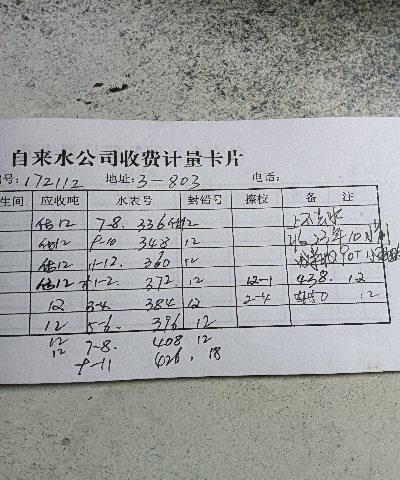 自来水公司收费计量卡片
号: 172112 地址: 3-803 电话:
生间 应收吨 水表号 封铅号 擦校 备 注
估12 7-8. 336 12
估12 9-10 348 12 23年10月
估12 11-12 360 12
估12 1-2 372 12 12-1 438. 12
12 3-4 384 12 2-4 12
12 5-6. 396 12
12 7-8. 408 12
12 9-11 426. 18